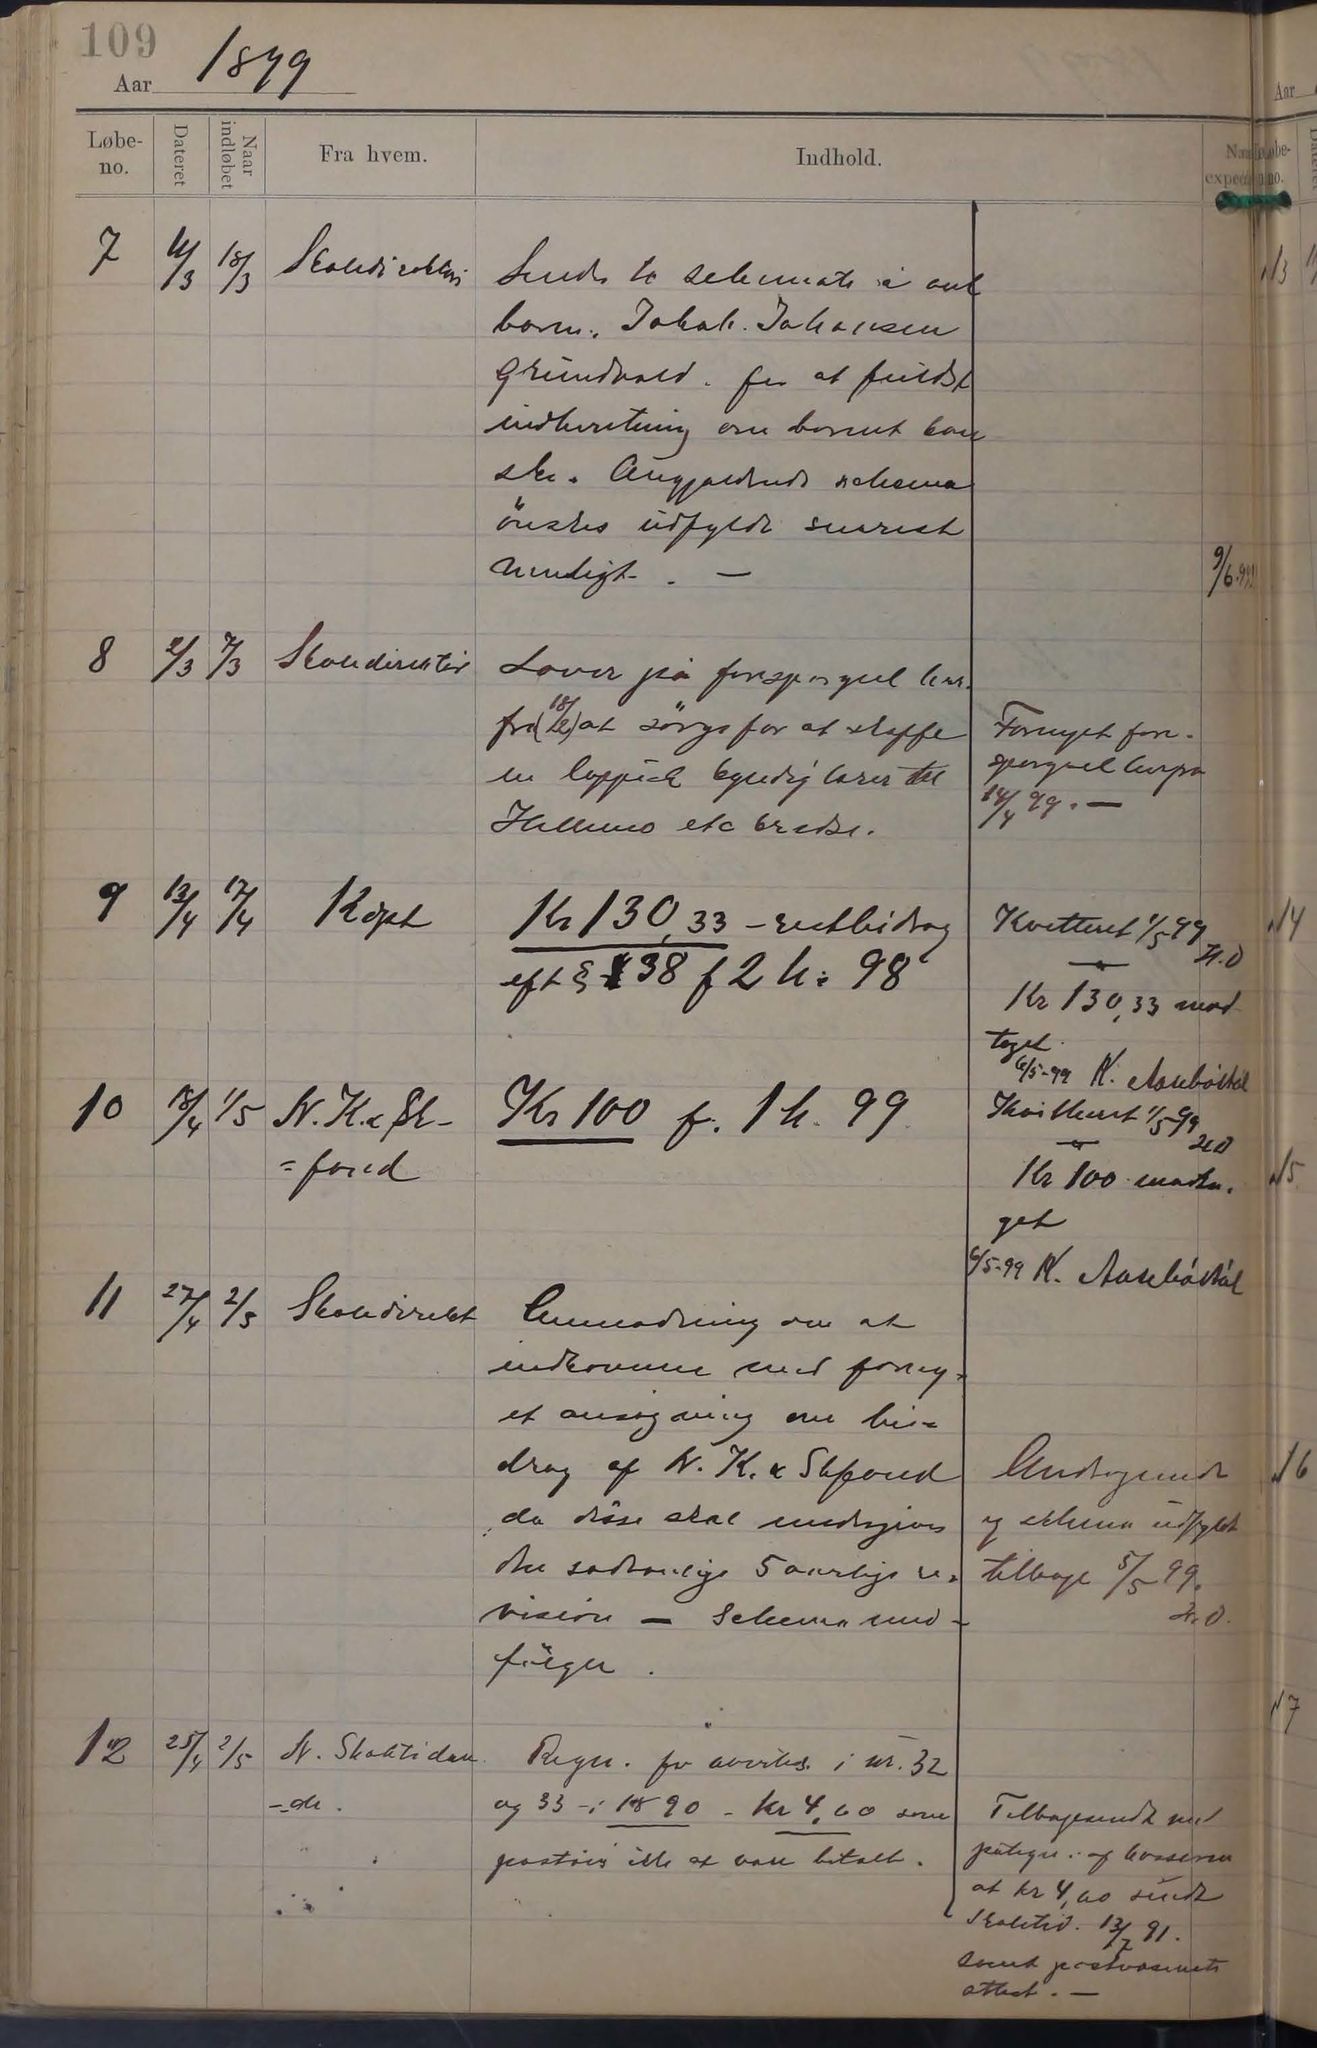 109
Aar 1899
Løbe-
no.
Dateret
Naar
indløbet
Fra hvem.
Indhold.
7 11/3 18/3 Skoledirektøri
Sender to schemata i anl
barn. Johah. Johansen
Grundvold. for at fuldst
indberetning om barnet kan
ske. Angjældende schema
önskes udfyldt snarest
muligt. —
9/6.99
8 2/3 7/3 Skoledirektör
Lover på forespørgsel her-
fra (18/2) at sörge for at skaffe
en lappisk kyndig lærer til
etc kredse.
Fornyet fore-
spørgsel herfra
14/4 99. —
9 13/4 17/4 Kdpt
Kr 130,33 – restbidrag
eft § 38 f 2 h: 98
Kvitteret 1/5 99
H.O
Kr 130,33 mod
taget
6/5-99 K.
10 18/4 1/5 N. K. & Sk-
= fond
Kr 100 f. 1 h. 99
Kvitteret 1/5 99
H.O
Kr 100 motta-
get
6/5-99 K.
11 27/4 2/5 Skoledirekt
Anmodning om at
indkomme med forny-
et ansögning om bi-
drag af N. K. & Skfond
da disse skal undergives
den sedvanlige 5 aarlige re-
vision — Schema med-
fölger.
Andragende
og schema udfyldt
tilbage 5/5 99.
H.O.
12 25/4 2/5 N. Skoletiden
-de.
Regn. for avertis. i nr. 32
og 33 - i 1890 - kr 4,00 som
påståes ikke at være betalt.
Tilbagesendt med
påtegn. af kasseren
at kr 4,00 sendt
Skoletid. 13/7 91.
samt postvæsenets
attest. —